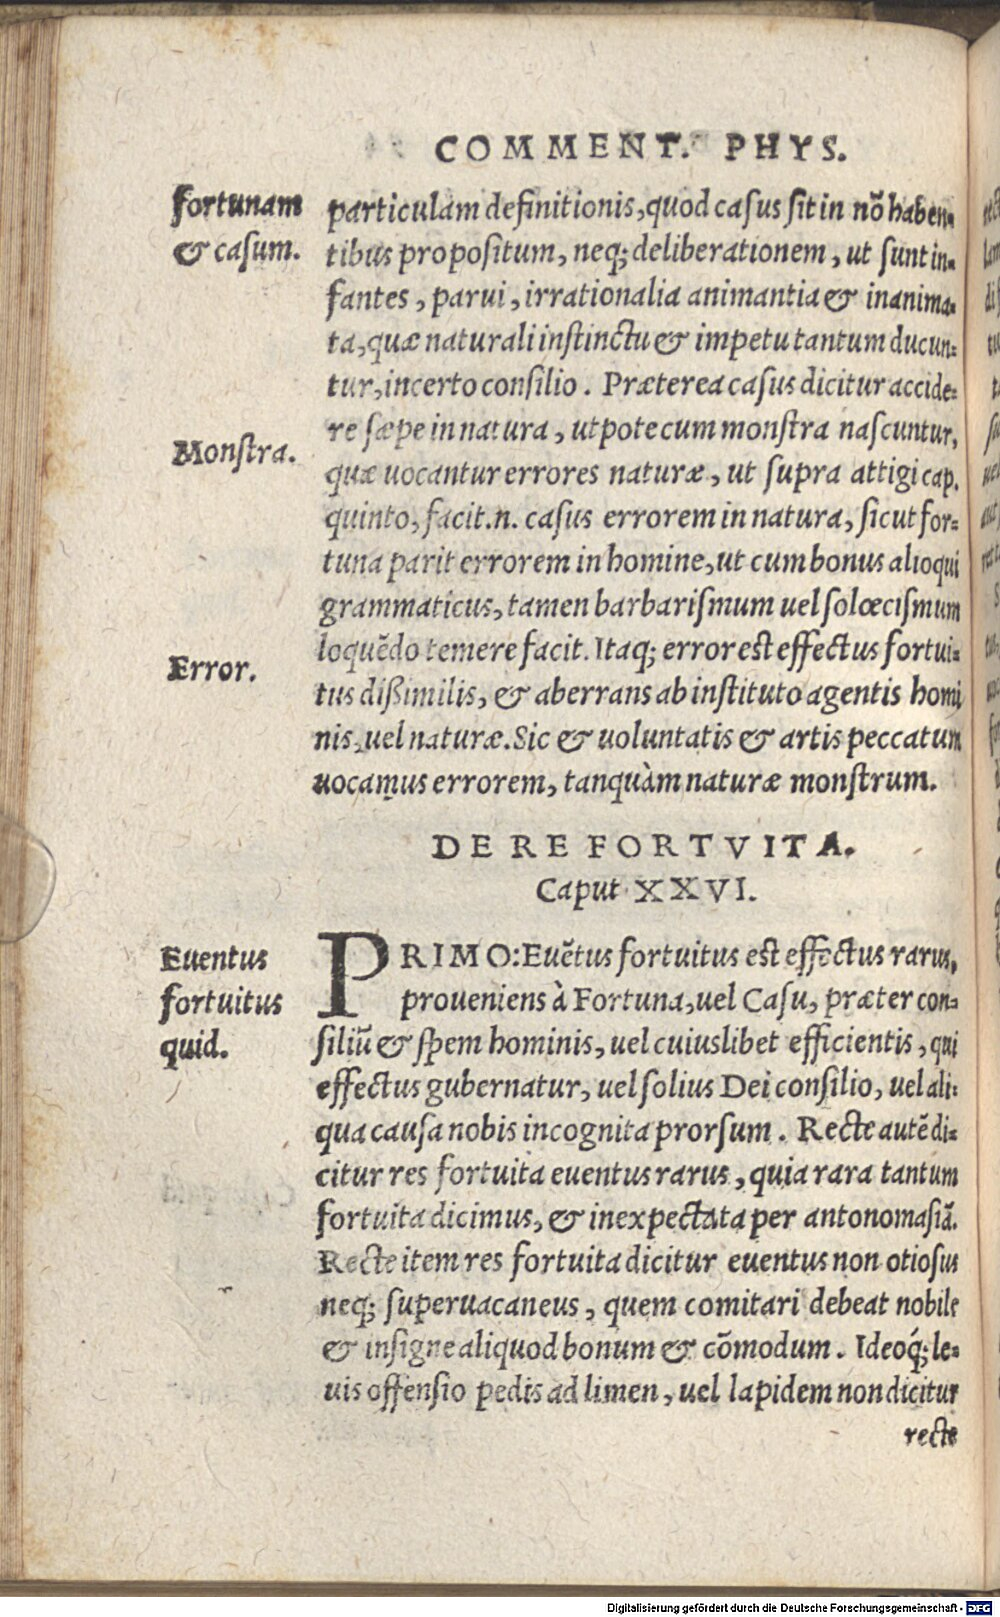 COMMENT. PHYS.
fortunam
& casum.
particulam definitionis, quod casus sit in nõ haben-
tibus propositum, neq; deliberationem, ut sunt in-
fantes, parui, irrationalia animantia & inanima-
ta, quæ naturali instinctu & impetu tantum ducun-
tur, incerto consilio. Præterea casus dicitur accide-
re sæpe in natura, utpote cum monstra nascuntur,
Monstra.
quæ uocantur errores naturæ, ut supra attigi cap.
quinto, facit.n. casus errorem in natura, sicut for-
tuna parit errorem in homine, ut cum bonus alioqui
grammaticus, tamen barbarismum uel solœcismum
loquẽdo temere facit. Itaq; error est effectus fortui-
Error.
tus dißimilis, & aberrans ab instituto agentis homi
nis, uel naturæ. Sic & uoluntatis & artis peccatum
uocamus errorem, tanquàm naturæ monstrum.
DE RE FORTVITA.
Caput XXVI.
Euentus
fortuitus
quid.
PRIMO: Euẽtus fortuitus est effectus rarus,
proueniens à Fortuna, uel Casu, præter con-
siliũ & spem hominis, uel cuiuslibet efficientis, qui
effectus gubernatur, uel solius Dei consilio, uel ali-
qua causa nobis incognita prorsum. Recte autẽ di-
citur res fortuita euentus rarus, quia rara tantum
fortuita dicimus, & inexpectata per antonomasiã.
Recte item res fortuita dicitur euentus non otiosus
neq; superuacaneus, quem comitari debeat nobile
& insigne aliquod bonum & cõmodum. Ideoq́; le-
uis offensio pedis ad limen, uel lapidem non dicitur
recte
Digitalisierung gefördert durch die Deutsche Forschungsgemeinschaft - DFG